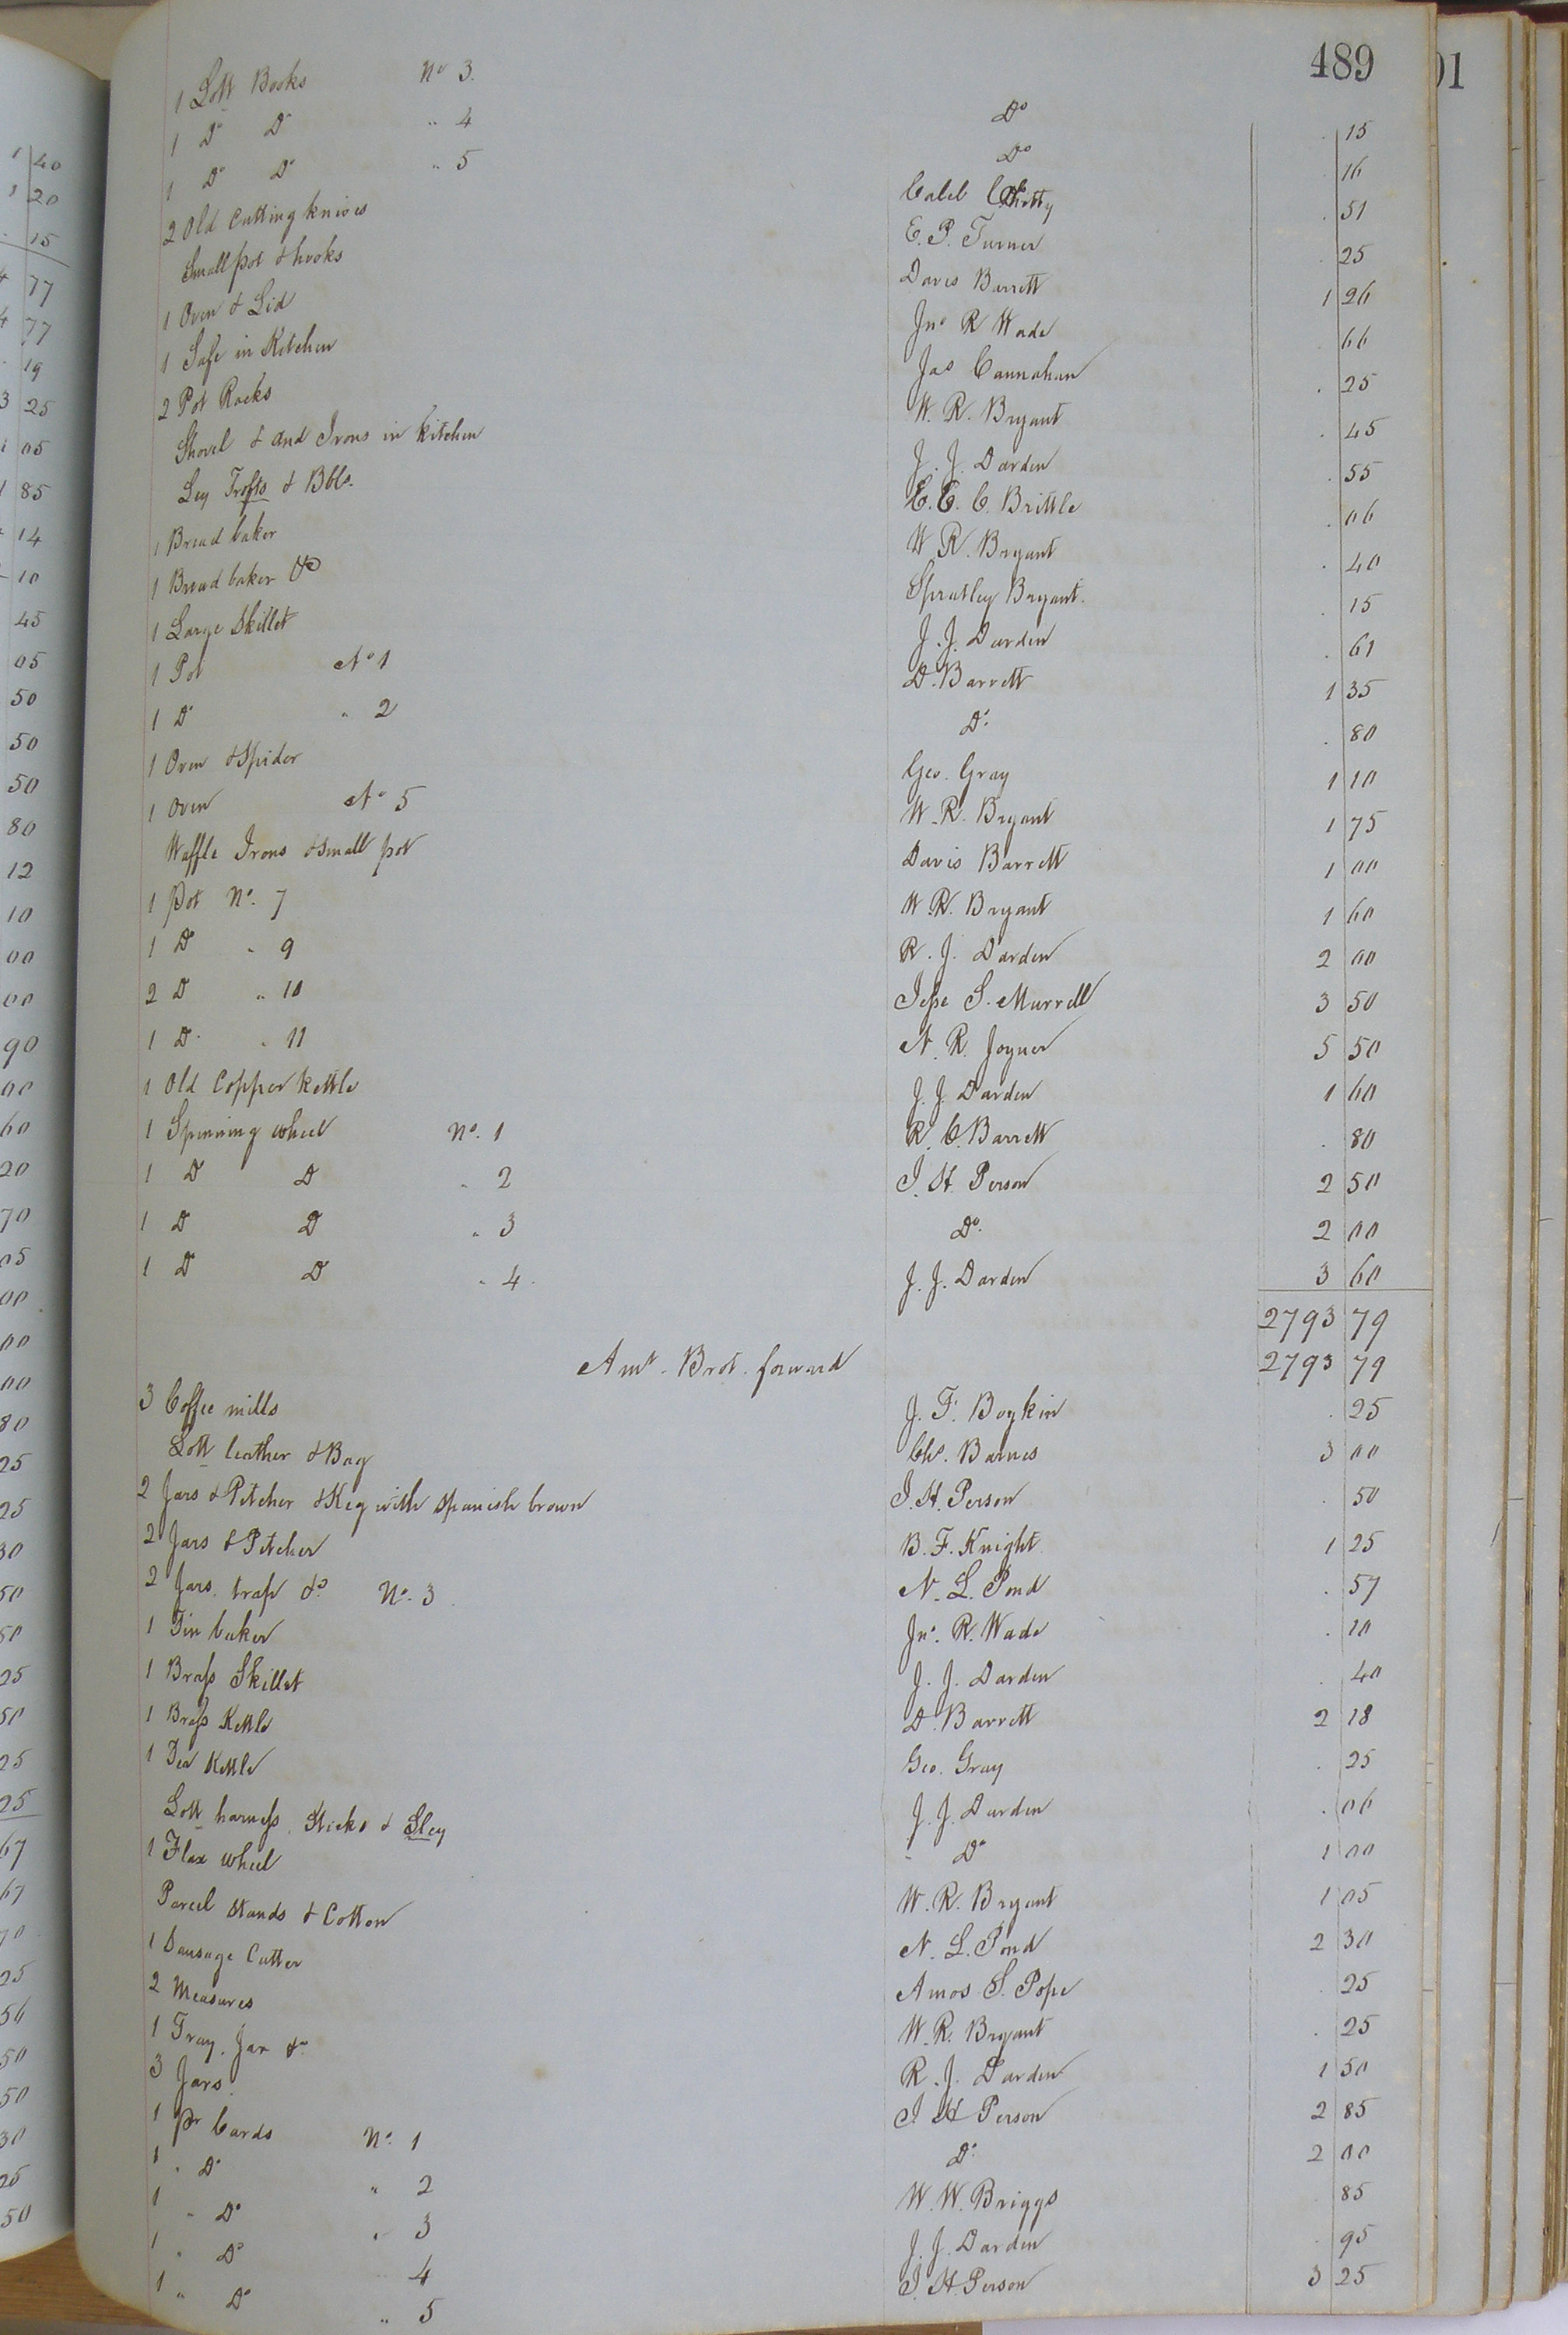 489
1 Lott Books No 3. Do . 15
1 Do Do " 4 Do 16
1 Do Do " 5 Caleb . 51
2 Old Cutting knives E. P. Turner . 25
Small pot & hooks Davis Barrett 1 26
1 Oven & Lid Jno R Wade . 66
1 Safe in Kitchen Jas Cannahan . 25
2 Pot Racks W. R. Bryant . 45
Shovel & And Irons in kitchen J. J. Darden . 55
Ley Trofts & Bbls. E. E. C. Brittle . 06
1 Bread baker W. R. Bryant . 40
1 Bread baker &c Spratley Bryant . 15
1 Large Skillet J. J. Darden . 61
1 Pot No 1 D. Barrett 1 35
1 Do " 2 Do . 80
1 Oven & Spider Geo. Gray 1 10
1 Oven No 5 W. R. Bryant 1 75
Waffle Irons & small pot Davis Barrett 1 00
1 Pot No. 7 W. R. Bryant 1 60
1 Do " 9 R. J. Darden 2 00
2 D " 10 Jesse S. Murrell 3 50
1 D. " 11 N. R. Joyner 5 50
1 Old Copper kettle J. J. Darden 1 60
1 Spinning wheel No. 1 R. C. Barrett . 80
1 D D " 2 I. H. Person 2 50
1 D D " 3 Do. 2 00
1 D D " 4. J. J. Darden 3 60
2793 79
Amt. Brot. forward 2793 79
3 Coffee mills J. F. Boykin . 25
Lott leather & Bag Chs. Barnes 3 00
2 Jars & Pitcher & Keg with Spanish brown I. H. Person . 50
2 Jars & Pitcher B. F. Knight 1 25
2 Jars. trap &c No. 3. N. L. Pond . 57
1 Tin baker Jno. R. Wade . 10
1 Brass Skillet J. J. Darden . 40
1 Brass Kettle D. Barrett 2 18
1 Tea Kettle Geo. Gray . 25
Lott harness. Sticks & Sley J. J. Darden . 06
1 Flax wheel Do 1 00
Parcel Stands & Cotton W. R. Bryant 1 05
1 Sausage Cutter N. L. Pond 2 30
2 Measures Amos S. Pope . 25
1 Tray. Jar &c W. R. Bryant . 25
3 Jars. R. J. Darden 1 50
1 Pr Cards No. 1 I H Person 2 85
1 " Do " 2 Do 2 00
1 " Do " 3 W. W. Briggs 85
1 " Do 4 J. J. Darden . 95
1 " Do " 5 I. H. Person 3 25